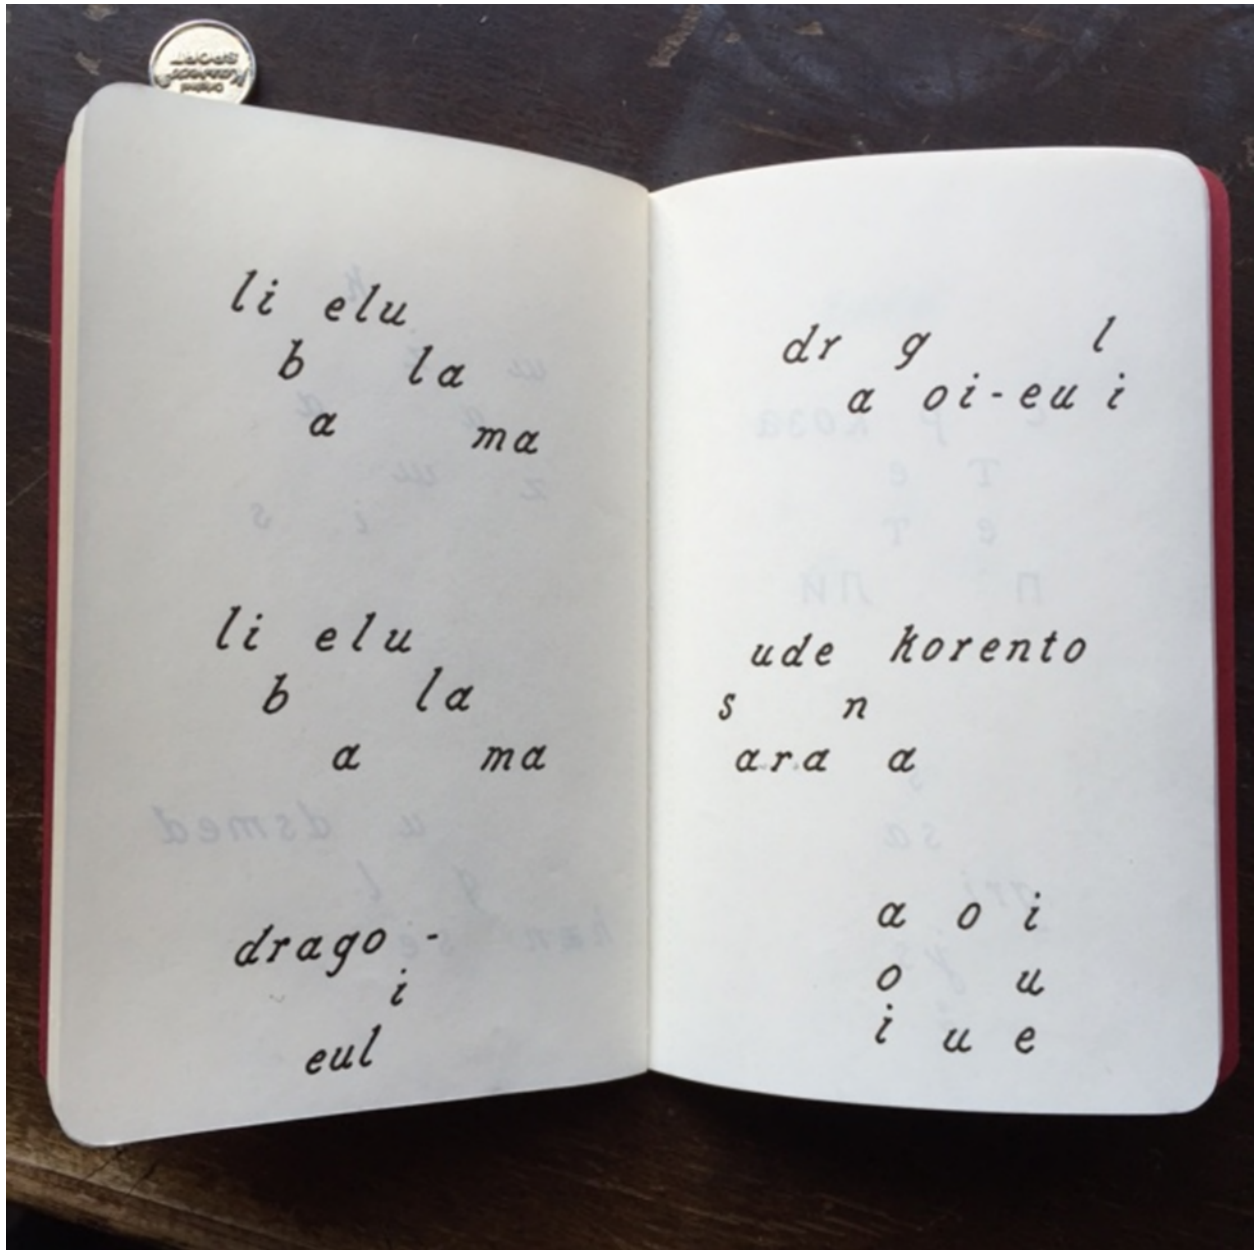 li elu
b la
a ma
li elu
b la
a ma
drago -
i
eul
dr g l
a oi-eu i
ude korento
s n
ara a
a o i
o u
i u e